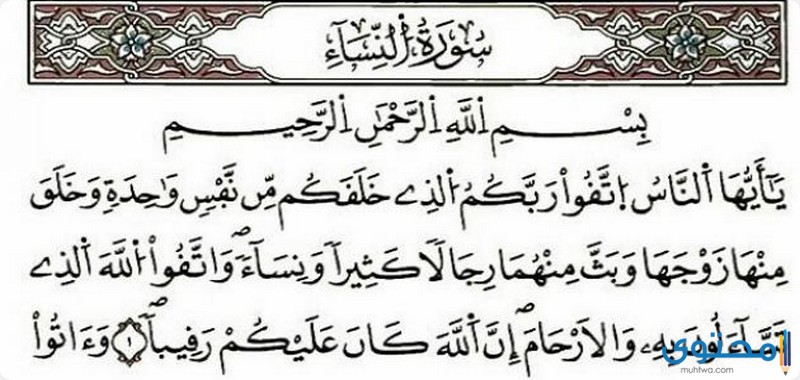 سُورَةُ اُلنِّسَآءِ
بِسْمِ اِللَّهِ اِلرَّحْمَٰنِ اِلرَّحِيمِ
يَٰٓأَيُّهَا اَلنَّاسُ اُتَّقُواْ رَبَّكُمُ اُلذِے خَلَقَكُم مِّن نَّفْسٖ وَٰحِدَةٖ وَخَلَقَ
مِنْهَا زَوْجَهَا وَبَثَّ مِنْهُمَا رِجَالاٗ كَثِيراٗ وَنِسَآءٗۖ وَاتَّقُواْ اُللَّهَ اَلذِے
تَسَّآءَلُونَ بِهِۦ وَالَارْحَامَۖ إِنَّ اَللَّهَ كَانَ عَلَيْكُمْ رَقِيباٗۖ ١ وَءَاتُواْ
محتوى
muhtwa.com